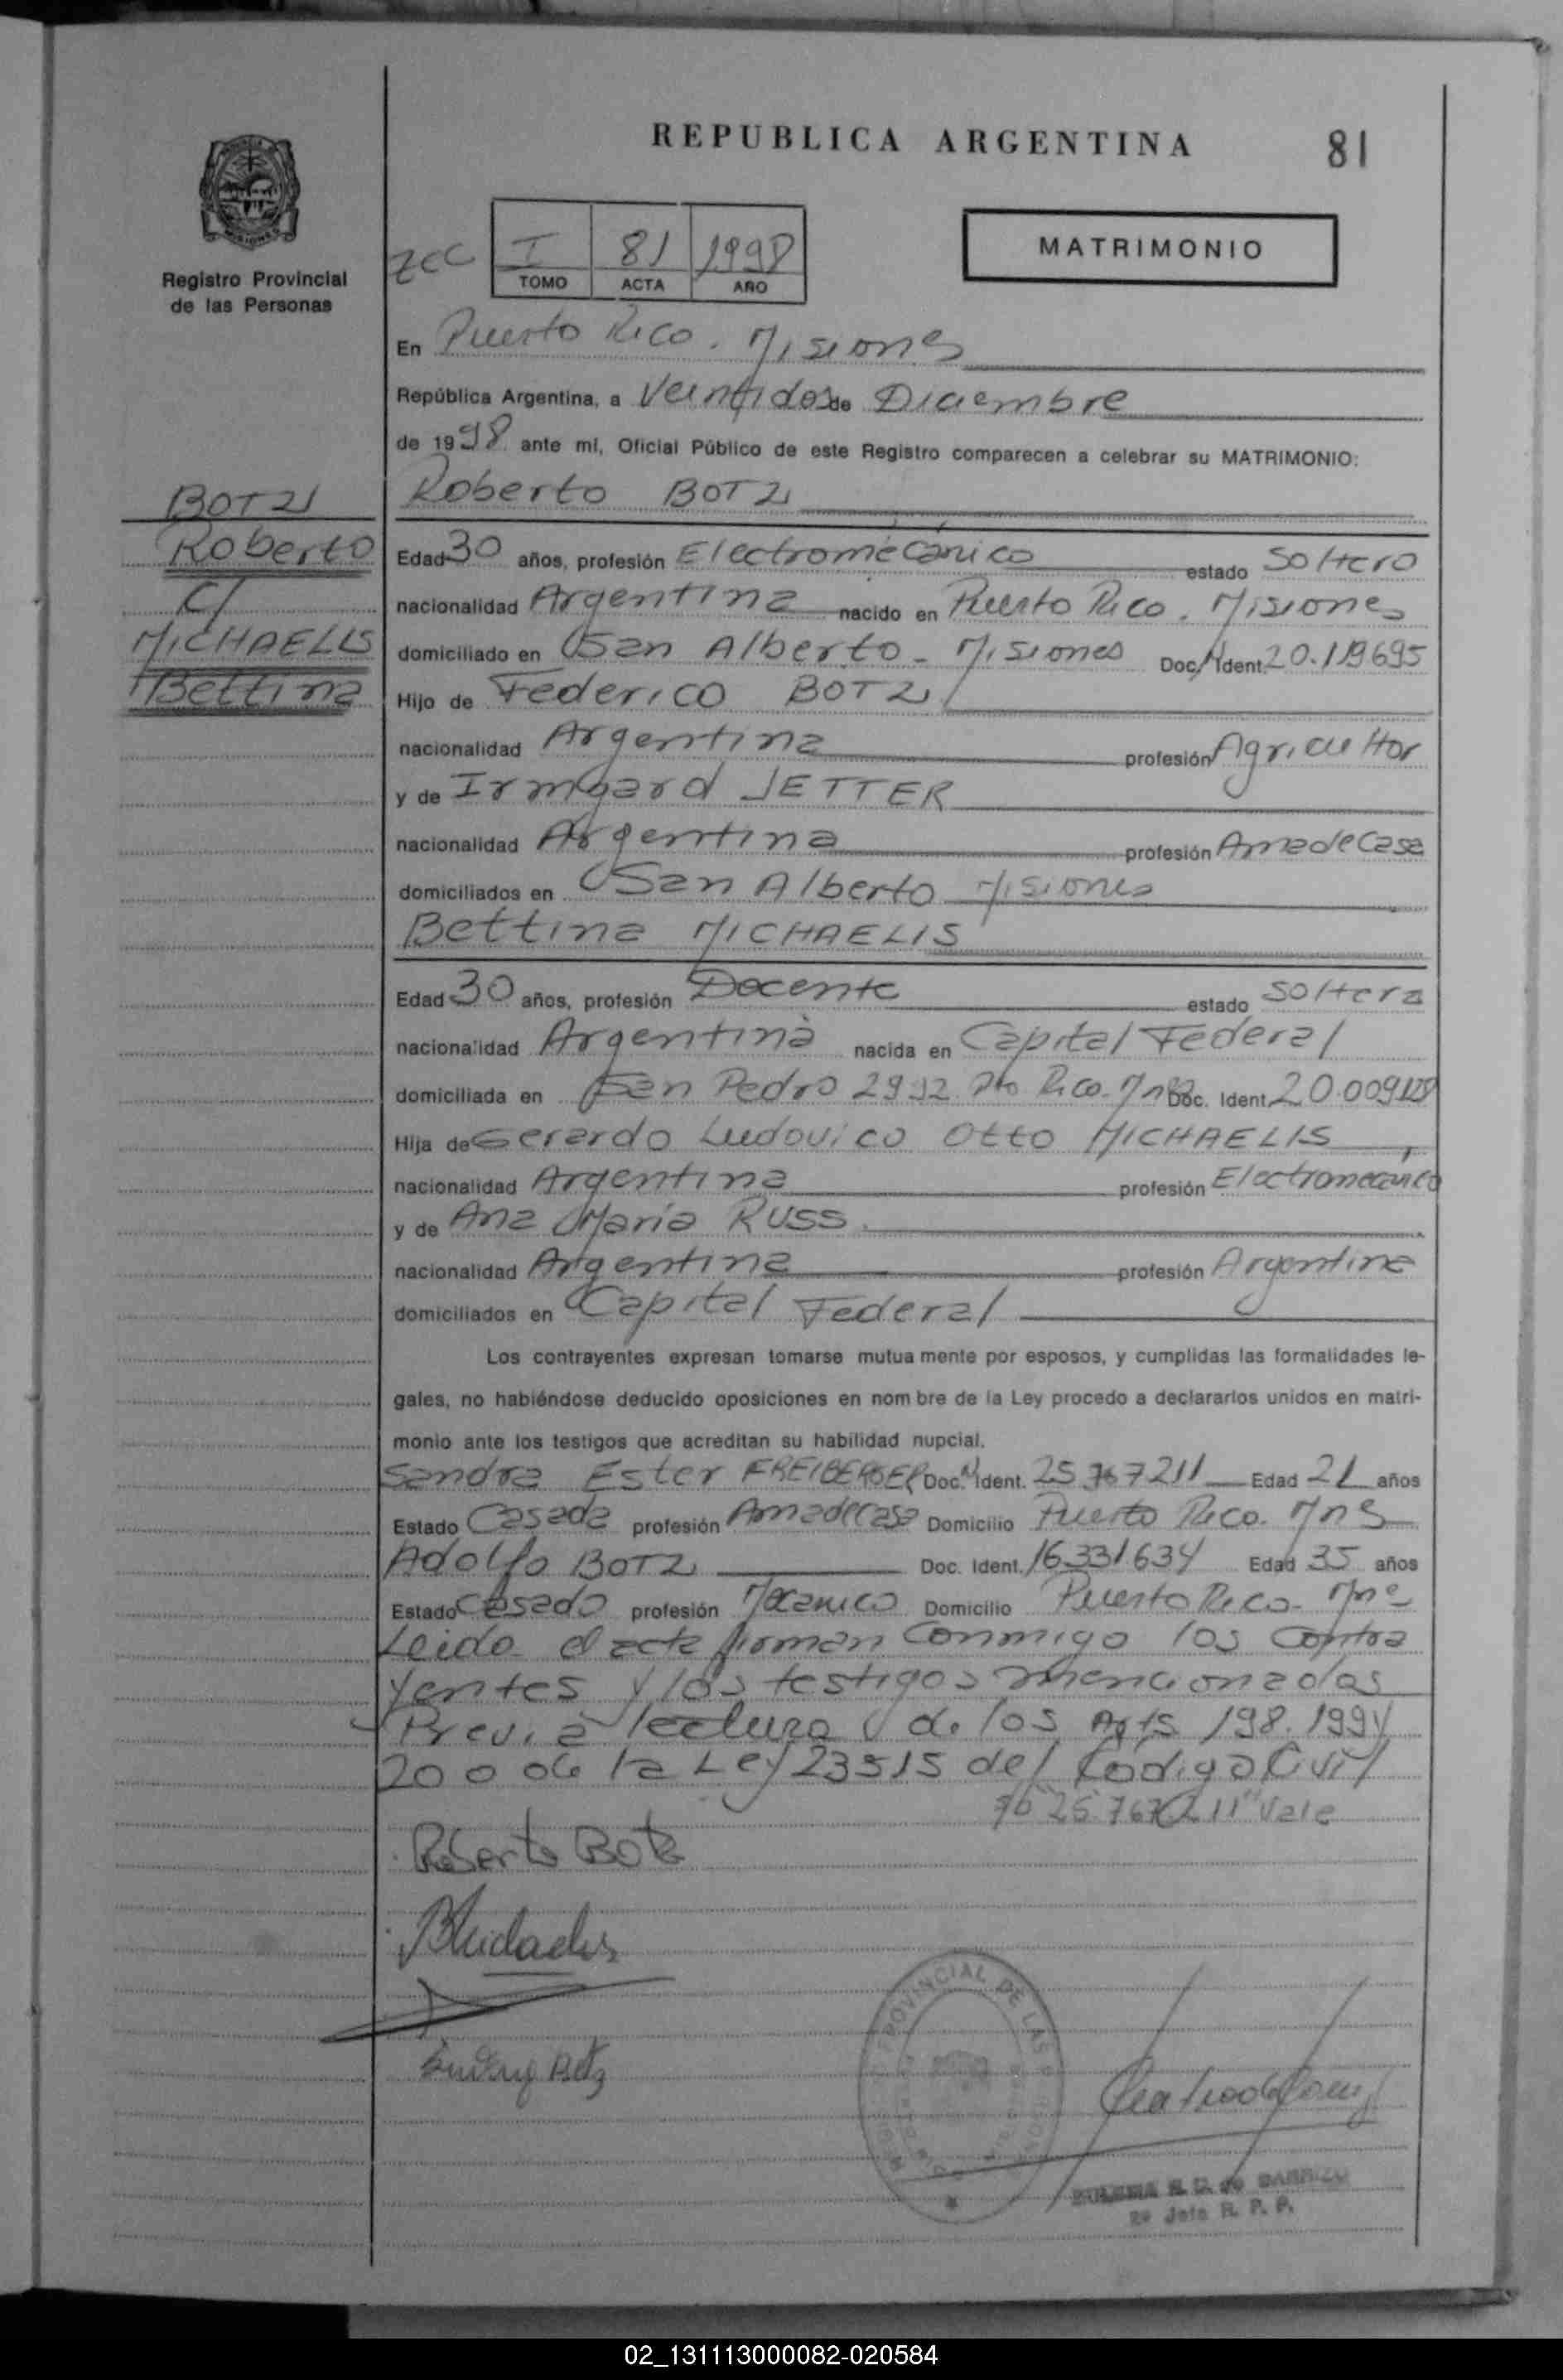 REPUBLICA ARGENTINA
81
Registro Provincial
de las Personas
I 81 1998
TOMO ACTA AÑO
MATRIMONIO
En Puerto Rico. Misiones
República Argentina, a Veintidos de Diciembre
de 1998 ante mí, Oficial Público de este Registro comparecen a celebrar su MATRIMONIO:
Roberto BOTZ
BOTZ
Roberto
C/
MICHAELIS
Bettina
Edad 30 años, profesión Electromécánico estado Soltero
nacionalidad Argentina nacido en Puerto Rico. Misiones
domiciliado en San Alberto - Misiones Doc. Ident. 20.119695
Hijo de Federico BOTZ
nacionalidad Argentina profesión Agricultor
y de Irmgard JETTER
nacionalidad Argentina profesión Ama de Casa
domiciliados en San Alberto Misiones
Bettina MICHAELIS
Edad 30 años, profesión Docente estado Soltera
nacionalidad Argentina nacida en Capital Federal
domiciliada en San Pedro 2992 Pto Rico. Doc. Ident. 20.009128
Hija de Gerardo Ludovico Otto MICHAELIS
nacionalidad Argentina profesión Electromecánico
y de Ana María RUSS
nacionalidad Argentina profesión Argentina
domiciliados en Capital Federal
Los contrayentes expresan tomarse mutua mente por esposos, y cumplidas las formalidades le-
gales, no habiéndose deducido oposiciones en nom bre de la Ley procedo a declararlos unidos en matri-
monio ante los testigos que acreditan su habilidad nupcial.
Sandra Ester FREIBERGER Doc. Ident. 25.767211 Edad 21 años
Estado Casada profesión Ama de Casa Domicilio Puerto Rico. Mns
Adolfo BOTZ Doc. Ident. 16331634 Edad 35 años
Estado Casado profesión Mecanico Domicilio Puerto Rico- Mns
Leida el acta firman Conmigo los Contra
yentes y los testigos mencionados
Previa lectura de los Arts 198. 199 y
200 de la Ley 23515 del Código Civil
25.767211" Vale
Roberto Botz
PROVINCIAL DE LAS
ZULEMA R. D. de CARRIZO
2º Jefe R. P. P.
02_131113000082-020584